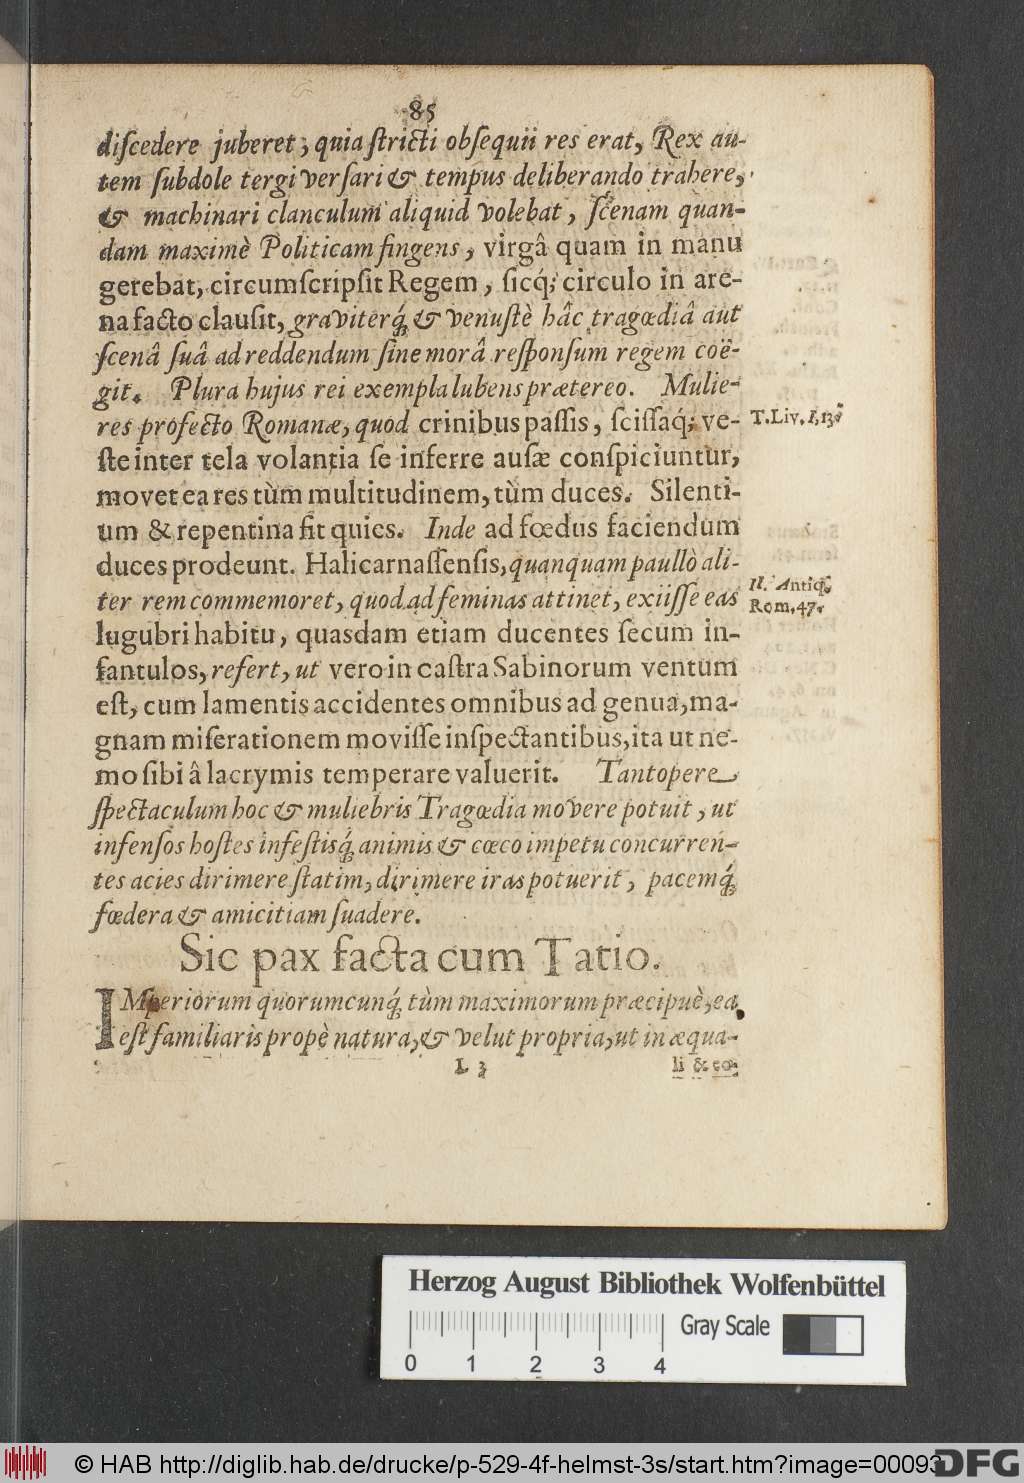 85
diſcedere juberet; quia ſtricti obſequii res erat, Rex au-
tem ſubdole tergiverſari & tempus deliberando trahere,
& machinari clanculum aliquid volebat, ſcenam quan-
dam maximè Politicam fingens, virgâ quam in manu
gerebat, circumſcripſit Regem, ſicq́; circulo in are-
na facto clauſit, graviterq́; & venuſtè hâc tragœdiâ aut
ſcenâ ſuâ ad reddendum ſine morâ reſponſum regem coë-
git. Plura hujus rei exempla lubens prætereo. Mulie-
res profecto Romanæ, quod crinibus paſſis, ſciſſaq́; ve-
T.Liv. I, 13.
ſte inter tela volantia ſe inferre auſæ conſpiciuntur,
movet ea res tùm multitudinem, tùm duces. Silenti-
um & repentina fit quies. Inde ad fœdus faciendum
duces prodeunt. Halicarnaſſenſis, quanquam paullò ali-
II. Antiq.
ter rem commemoret, quod ad feminas attinet, exiiſſe eas
Rom. 47.
lugubri habitu, quasdam etiam ducentes ſecum in-
fantulos, refert, ut vero in caſtra Sabinorum ventum
eſt, cum lamentis accidentes omnibus ad genua, ma-
gnam miſerationem moviſſe inſpectantibus, ita ut ne-
mo ſibi â lacrymis temperare valuerit. Tantopere
ſpectaculum hoc & muliebris Tragœdia movere potuit, ut
infenſos hoſtes infeſtisq́; animis & cœco impetu concurren-
tes acies dirimere ſtatim, dirimere iras potuerit, pacemq́;
fœdera & amicitiam ſuadere.
Sic pax facta cum Tatio.
IMperiorum quorumcunq́; tùm maximorum præcipuè, ea
eſt familiaris propè natura, & velut propria, ut in æqua-
L 3
li & eo-
Herzog August Bibliothek Wolfenbüttel
Gray Scale
0 1 2 3 4
© HAB http://diglib.hab.de/drucke/p-529-4f-helmst-3s/start.htm?image=00093
DFG